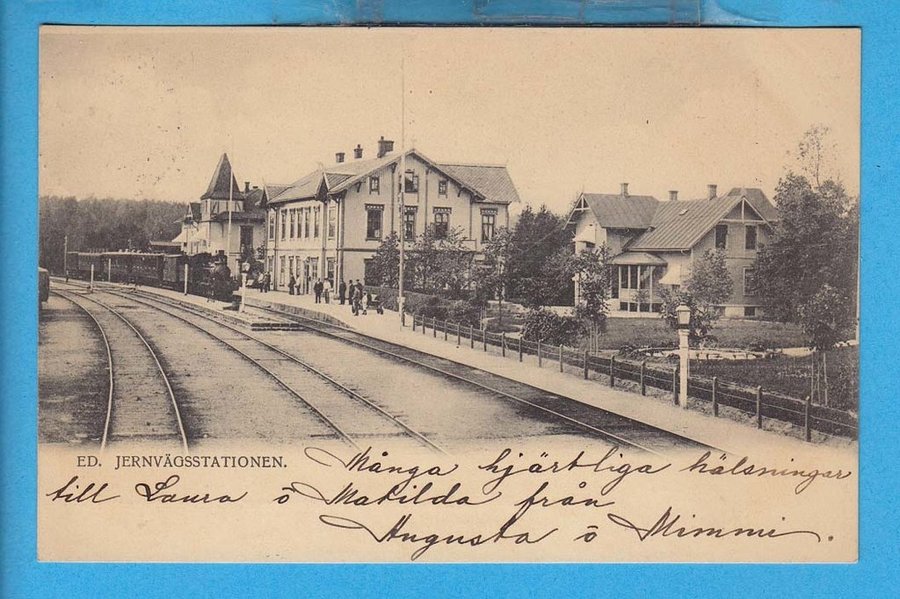 ED. JERNVÄGSSTATIONEN.
Många hjärtliga hälsningar
till Laura ō Matilda från
Augusta ō Mimmi.